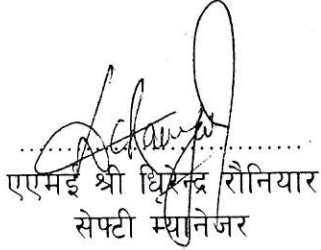 एएमई श्री धिरेन्द्र रौनियार
सेफ्टी म्यानेजर